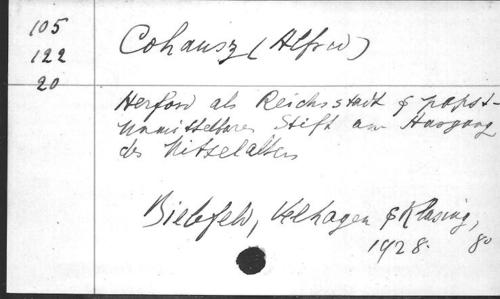 105
122
20
Cohausz (Alfred)
Herford als Reichsstadt & papst-
unmittelbares Stift am Ausgang
des Mittelalters
Bielefeld, Velhagen & Klasing,
1928. 8o